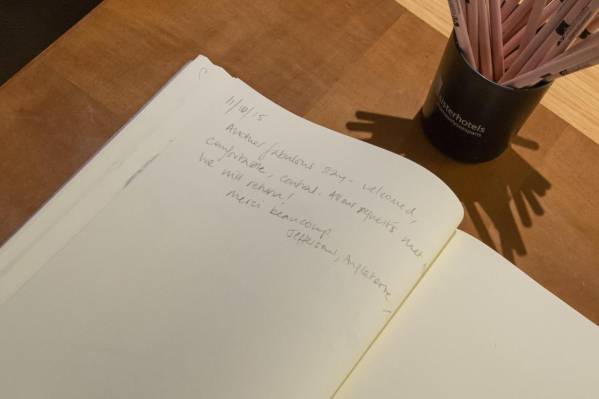 11/10/15
Another fabulous stay - welcomed,
comfortable, central. All our requests met,
we will return!
Merci beaucoup!
Jeffersons, Angleterre
isterhotels